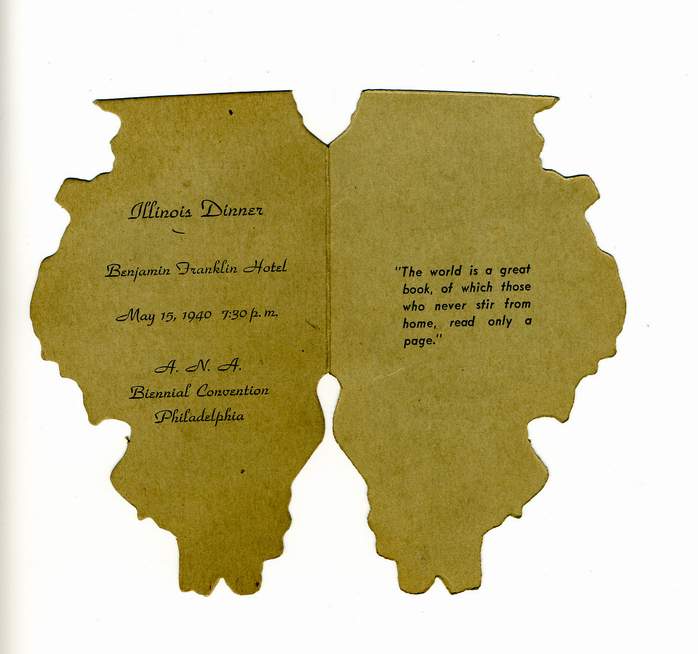 Illinois Dinner
Benjamin Franklin Hotel
May 15, 1940 7:30 p. m.
A. N. A.
Biennial Convention
Philadelphia
"The world is a great
book, of which those
who never stir from
home, read only a
page."